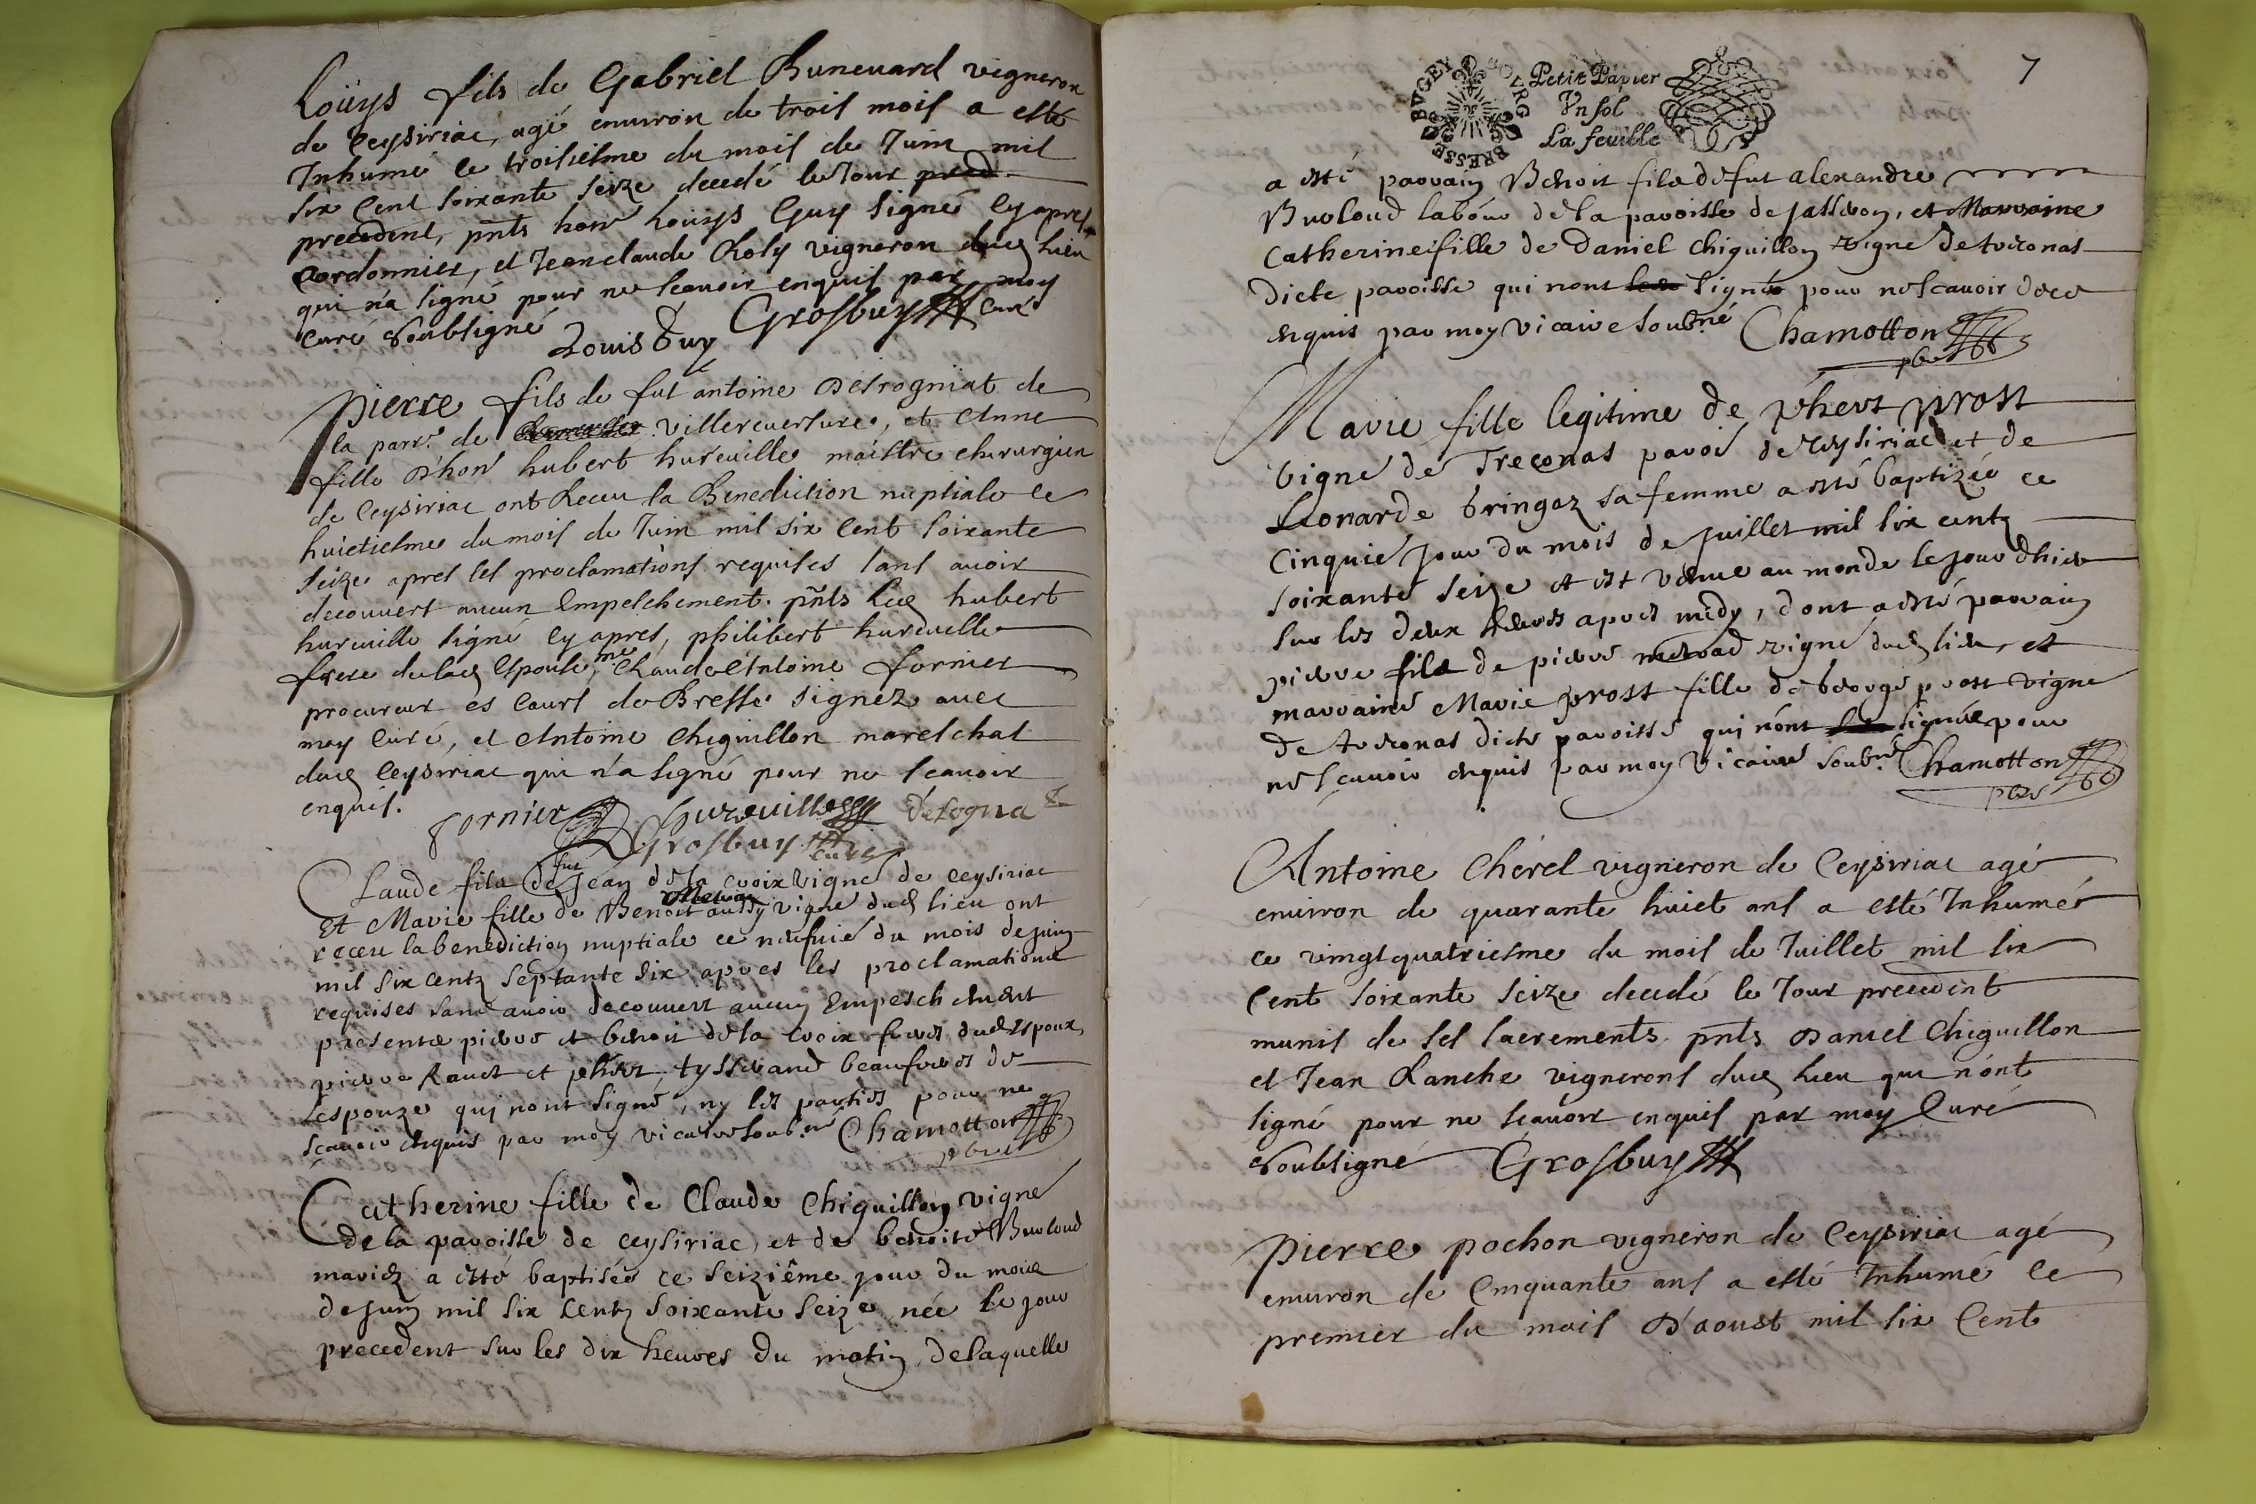 Loüys fils de Gabriel Buneuard vigneron
de Ceysiriac, agé enuiron de trois mois a esté
Inhumé le troisiesme du mois de Juin mil
six Cent soixante seize decedé le Jour pred.
precedent, pnts hon̄ Loüys Guy signé cy apres
Cordonnier, et Jean claude Roly vigneron dud lieu
qui n'a signé pour ne scauoir enquis par moy
curé soubsigné Louis Guy Grosbuy curé
Pierre fils de fut antoine Desrogniat de
la parr. de villereuersure, et Anne
fille d'hon̄ hubert hureuille maistre chirurgien
de Ceysiriac ont Receu la Benediction nuptiale le
huictiesme du mois de Juin mil six Cent soixante
seize apres les proclamations requises sans auoir
decouuert aucun Empeschement. pñts led hubert
hureuille signé cy apres, philibert hureuille
frere de lad Espouse, me Claude Antoine fornier
procureur es Cours de Bresse signez auec
moy Curé, et Antoine Chiguillon mareschal
dud Ceysiriac qui n'a signé pour ne scauoir
enquis. fornier Hureuille
Grosbuy curé
Claude fils de fut Jean de la croix vigne de ceysiriac
Et Marie fille de Benoit aussy vigne dud lieu ont
receu la benediction nuptiale ce neufuié du mois de juin
mil six centz septante six apres les proclamations
requises sans auoir decouuert aucun Empeschement
presents pierre et benoit de la croix freres dud Espoux,
pierre et phbert tysserand beaufreres de
l'espouze qui nont signé, ny les parties pour ne
scauoir enquis par moy vicaire soub.né Chamotton
pbre
Catherine fille de Claude Chiguillon vigne
de la paroisse de ceysiriac, et de benoite Burloud
mariez a esté baptisée ce seizième jour du mois
de juin mil six centz soixante seize née le jour
precedent sur les dix heures du matin, de laquelle
7
BRESSE BVGEY BOVRG
Petit Papier
Vn sol
La feuille
a esté parrain Benoit fils de fut alexandre
Burloud labour de la paroisse de Jasseron, et Marraine
Catherine fille de Daniel Chiguillon vigne de treconas
dicte paroisse qui nont signés pour ne scauoir de ce
enquis par moy vicaire soub.né Chamotton
pbre
Marie fille legitime de phbert prost
vigne de Treconas paroi de ceysiriac et de
Leonarde bringoz sa femme a esté baptizée ce
Cinquié jour du mois de juillet mil six centz
soixante seize et est venue au monde le jour d'hier
sur les deux heures apres midy, dont a esté parrain
pierre fils de pierre vigne dud lieu, et
marraine Marie prost fille de george prost vigne
de treconas dicte paroisse qui n'ont signés pour
ne scauoir enquis par moy vicaire soub.né Chamotton
pbre
Antoine Chérel vigneron de Ceysiriac agé
enuiron de quarante huict ans a esté Inhumé
ce vingtquatriesme du mois de Juillet mil six
Cent soixante seize decedé le Jour precedent
munis de ses sacrements. pnts Daniel Chiguillon
et Jean Ranche vignerons dud lieu qui n'ont
signé pour ne scauoir enquis par moy Curé
soubsigné Grosbuy
Pierre pochon vigneron de Ceysiriac agé
enuiron de Cinquante ans a esté Inhumé le
premier du mois D'aoust mil six Cent